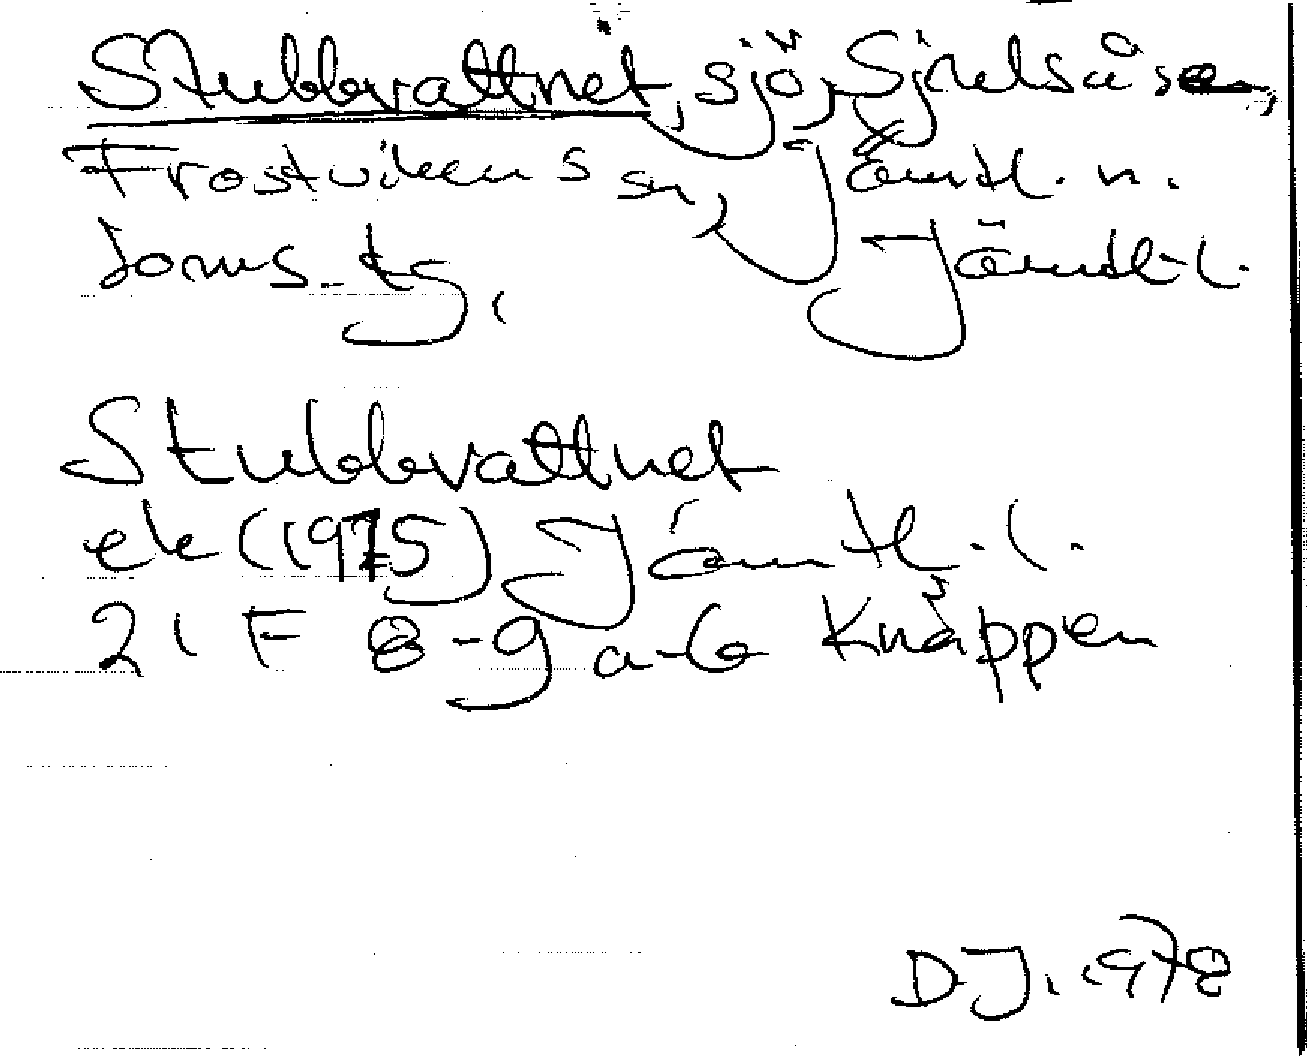 Stubbvattnet, sjö, Sjoulsåsen,
Frostvikens sn, Jämtl. n.
doms. tg, Jämtl. l.
Stubbvattnet
ek (1975) Jämtl. l.
21 F 8-9 a-b Knäppen
D.J. 1978